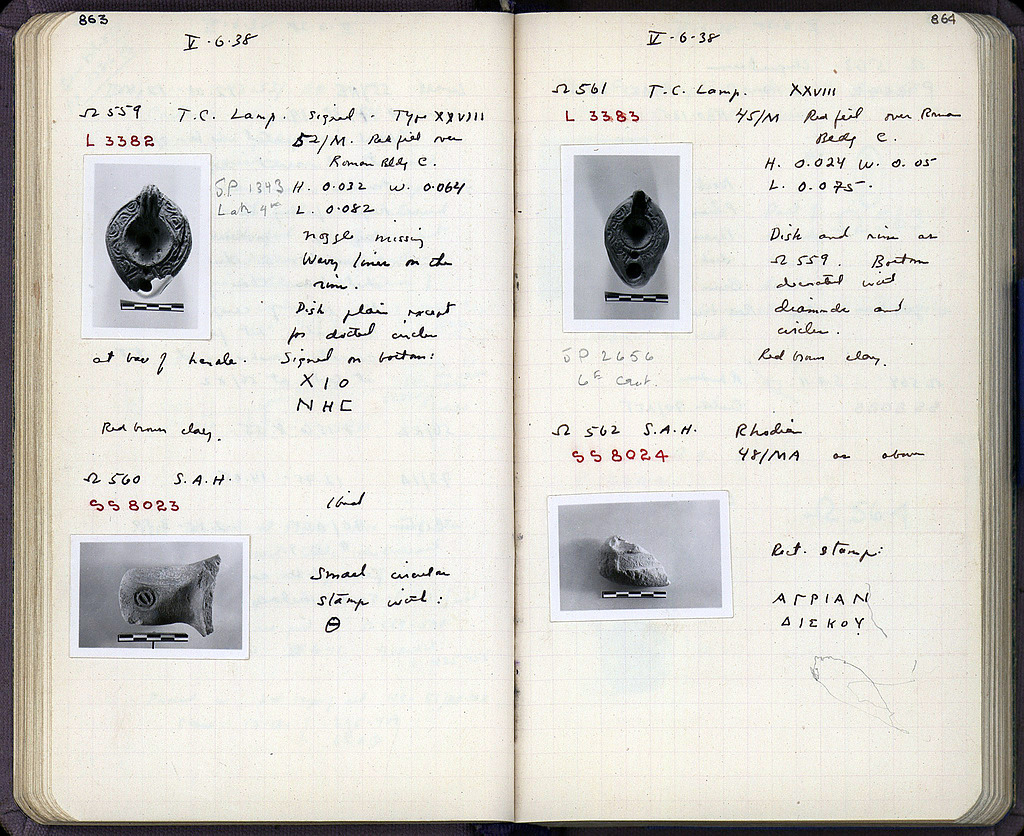 863
V·6·38
Ω 559 T.C. Lamp. Signed. Type XXVIII
L 3382
52/M. Red fill over
Roman Bldg C.
H. 0.032 W. 0.064
L. 0.082
Nozzle missing
Wavy lines on the
rim.
Disk plain except
for dotted circles
at base of handle. Signed on bottom:
Χ Ι Ο
Ν Η C
Red brown clay.
Ω 560 S.A.H.
SS 8023
Small circular
stamp with:
Θ
864
V·6·38
Ω 561 T.C. Lamp. XXVIII
L 3383
45/M Red fill over Roman
Bldg C.
H. 0.024 W. 0.05
L. 0.075.
Disk and rim as
Ω 559. Bottom
decorated with
diamonds and
circles.
JP 2656
6th Cent.
Red brown clay.
Ω 562 S.A.H. Rhodian
SS 8024
48/MA as above
Rect. stamp:
ΑΓΡΙΑΝ
ΔΙΣΚΟΥ